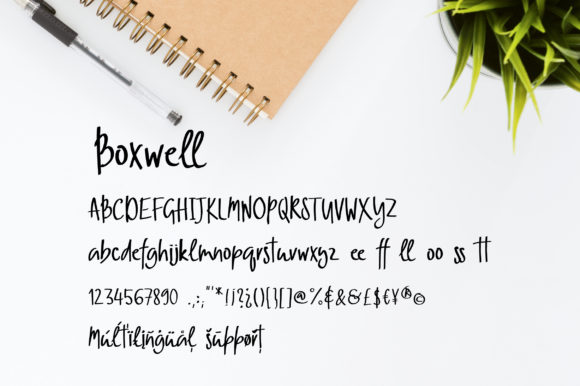 Boxwell
ABCDEFGHIJKLMNOPQRSTUVWXYZ
abcdefghijklmnopqrstuvwxyz ee ff ll oo ss tt
1234567890 .,:;"'*!¡?¿(){}[]@%&&£$€¥®©
Múlťïłįñġüåļ šūþþøŗţ